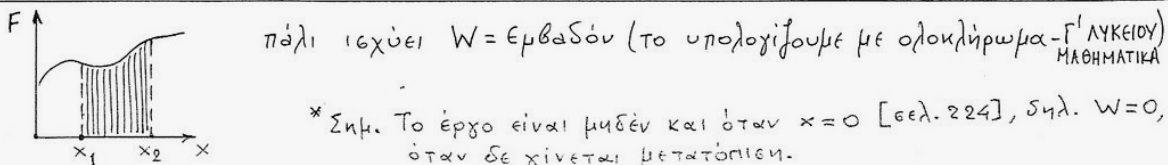 F
πάλι ισχύει W = Εμβαδόν (το υπολογίζουμε με ολοκλήρωμα - Γ' ΛΥΚΕΙΟΥ)
ΜΑΘΗΜΑΤΙΚΑ
* Σημ. Το έργο είναι μηδέν και όταν x = 0 [σελ. 224], δηλ. W = 0,
x₁ x₂ x
όταν δε γίνεται μετατόπιση.